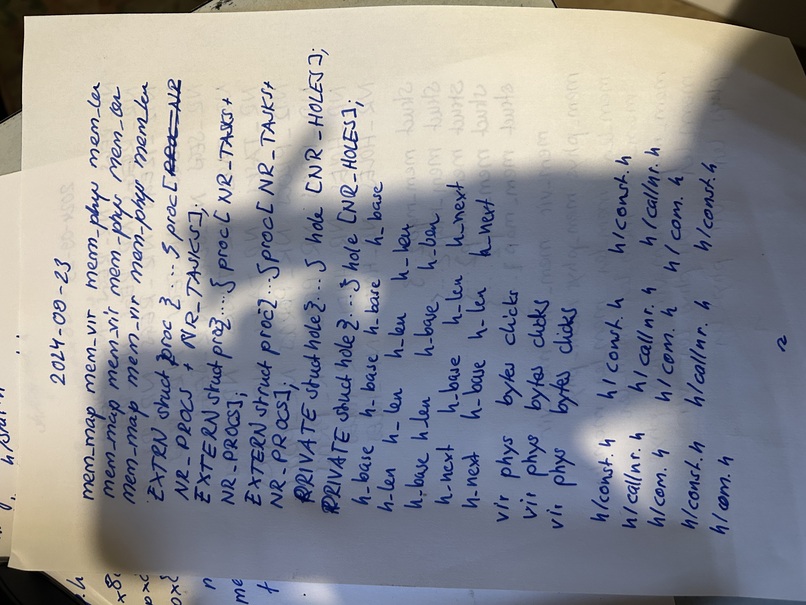 2024-09-23
mem_map mem_vir mem_phys mem_len
mem_map mem_vir mem_phys mem_len
mem_map mem_vir mem_phys mem_len
EXTRN struct proc { ... } proc [
NR_PROCS + NR_TASKS];
EXTERN struct proc{ ... } proc [ NR_TASKS +
NR_PROCS];
EXTERN struct proc{ ... } proc [ NR_TASKS +
NR_PROCS];
PRIVATE struct hole { ... } hole [NR_HOLES];
PRIVATE struct hole { ... } hole [NR_HOLES];
h_base h_base h_base h_base
h_len h_len h_len h_len
h_base h_len h_base h_len
h_next h_base h_len h_next
h_next h_base h_len h_next
vir phys bytes clicks
vir phys bytes clicks
vir phys bytes clicks
h/const.h h/const.h h/const.h
h/callnr.h h/callnr.h h/callnr.h
h/com.h h/com.h h/com.h
h/const.h h/callnr.h h/const.h
h/com.h
2